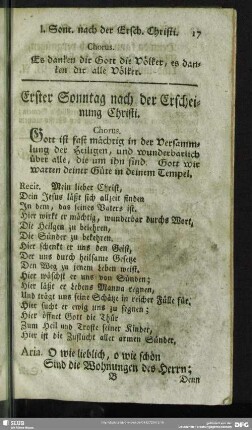 1. Sont. nach der Ersch. Christi. 17
Chorus.
Es danken dir Gott die Völker, es dan-
ken dir alle Völker.
Erster Sonntag nach der Erschei-
nung Christi.
Chorus.
Gott ist fast mächtig in der Versamm-
lung der Heiligen, und wunderbarlich
über alle, die um ihn sind. Gott wir
warten deiner Güte in deinem Tempel.
Recit. Mein lieber Christ,
Dein Jesus läßt sich allzeit finden
In dem, das seines Vaters ist.
Hier wirkt er mächtig, wunderbar durchs Wort,
Die Heilgen zu belehren,
Die Sünder zu bekehren.
Hier schenkt er uns den Geist,
Der uns durch heilsame Gesetze
Den Weg zu jenem Leben weist.
Hier wäscht er uns von Sünden;
Hier läßt er Lebens Manna regnen,
Und trägt uns seine Schätz in reicher Fülle für.
Hier sucht er ewig uns zu segnen;
Hier öffnet Gott die Thür
Zum Heil und Troste seiner Kinder,
Hier ist die Zuflucht aller armen Sünder,
Aria. O wie lieblich, o wie schön
Sind die Wohnungen des Herrn;
B Denn
SLUB
DFG